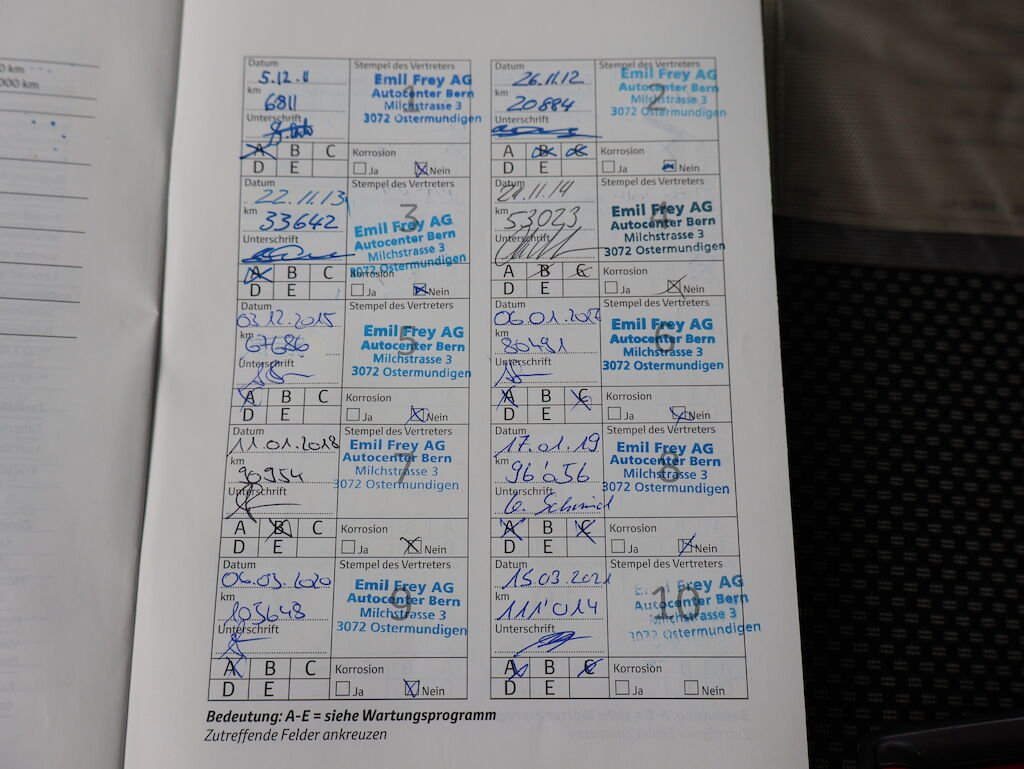 0 km
000 km
Datum
5.12.11
km
6811
Unterschrift
Stempel des Vertreters
1
Emil Frey AG
Autocenter Bern
Milchstrasse 3
3072 Ostermundigen
A B C
D E
Korrosion
Ja Nein
Datum
26.11.12
km
20884
Unterschrift
Stempel des Vertreters
2
Emil Frey AG
Autocenter Bern
Milchstrasse 3
3072 Ostermundigen
A B C
D E
Korrosion
Ja Nein
Datum
22.11.13
km
33642
Unterschrift
Stempel des Vertreters
3
Emil Frey AG
Autocenter Bern
Milchstrasse 3
3072 Ostermundigen
A B C
D E
Korrosion
Ja Nein
Datum
km
53023
Unterschrift
Stempel des Vertreters
4
Emil Frey AG
Autocenter Bern
Milchstrasse 3
3072 Ostermundigen
A B C
D E
Korrosion
Ja Nein
Datum
03.12.2015
km
67686
Unterschrift
Stempel des Vertreters
5
Emil Frey AG
Autocenter Bern
Milchstrasse 3
3072 Ostermundigen
A B C
D E
Korrosion
Ja Nein
Datum
km
80491
Unterschrift
Stempel des Vertreters
6
Emil Frey AG
Autocenter Bern
Milchstrasse 3
3072 Ostermundigen
A B C
D E
Korrosion
Ja Nein
Datum
11.01.2018
km
90954
Unterschrift
Stempel des Vertreters
7
Emil Frey AG
Autocenter Bern
Milchstrasse 3
3072 Ostermundigen
A B C
D E
Korrosion
Ja Nein
Datum
17.01.19
km
96'056
Unterschrift
Schmid
Stempel des Vertreters
8
Emil Frey AG
Autocenter Bern
Milchstrasse 3
3072 Ostermundigen
A B C
D E
Korrosion
Ja Nein
Datum
06.03.2020
km
103648
Unterschrift
Stempel des Vertreters
9
Emil Frey AG
Autocenter Bern
Milchstrasse 3
3072 Ostermundigen
A B C
D E
Korrosion
Ja Nein
Datum
15.03.2021
km
111'014
Unterschrift
Stempel des Vertreters
10
Emil Frey AG
Autocenter Bern
Milchstrasse 3
3072 Ostermundigen
A B C
D E
Korrosion
Ja Nein
Bedeutung: A-E = siehe Wartungsprogramm
Zutreffende Felder ankreuzen